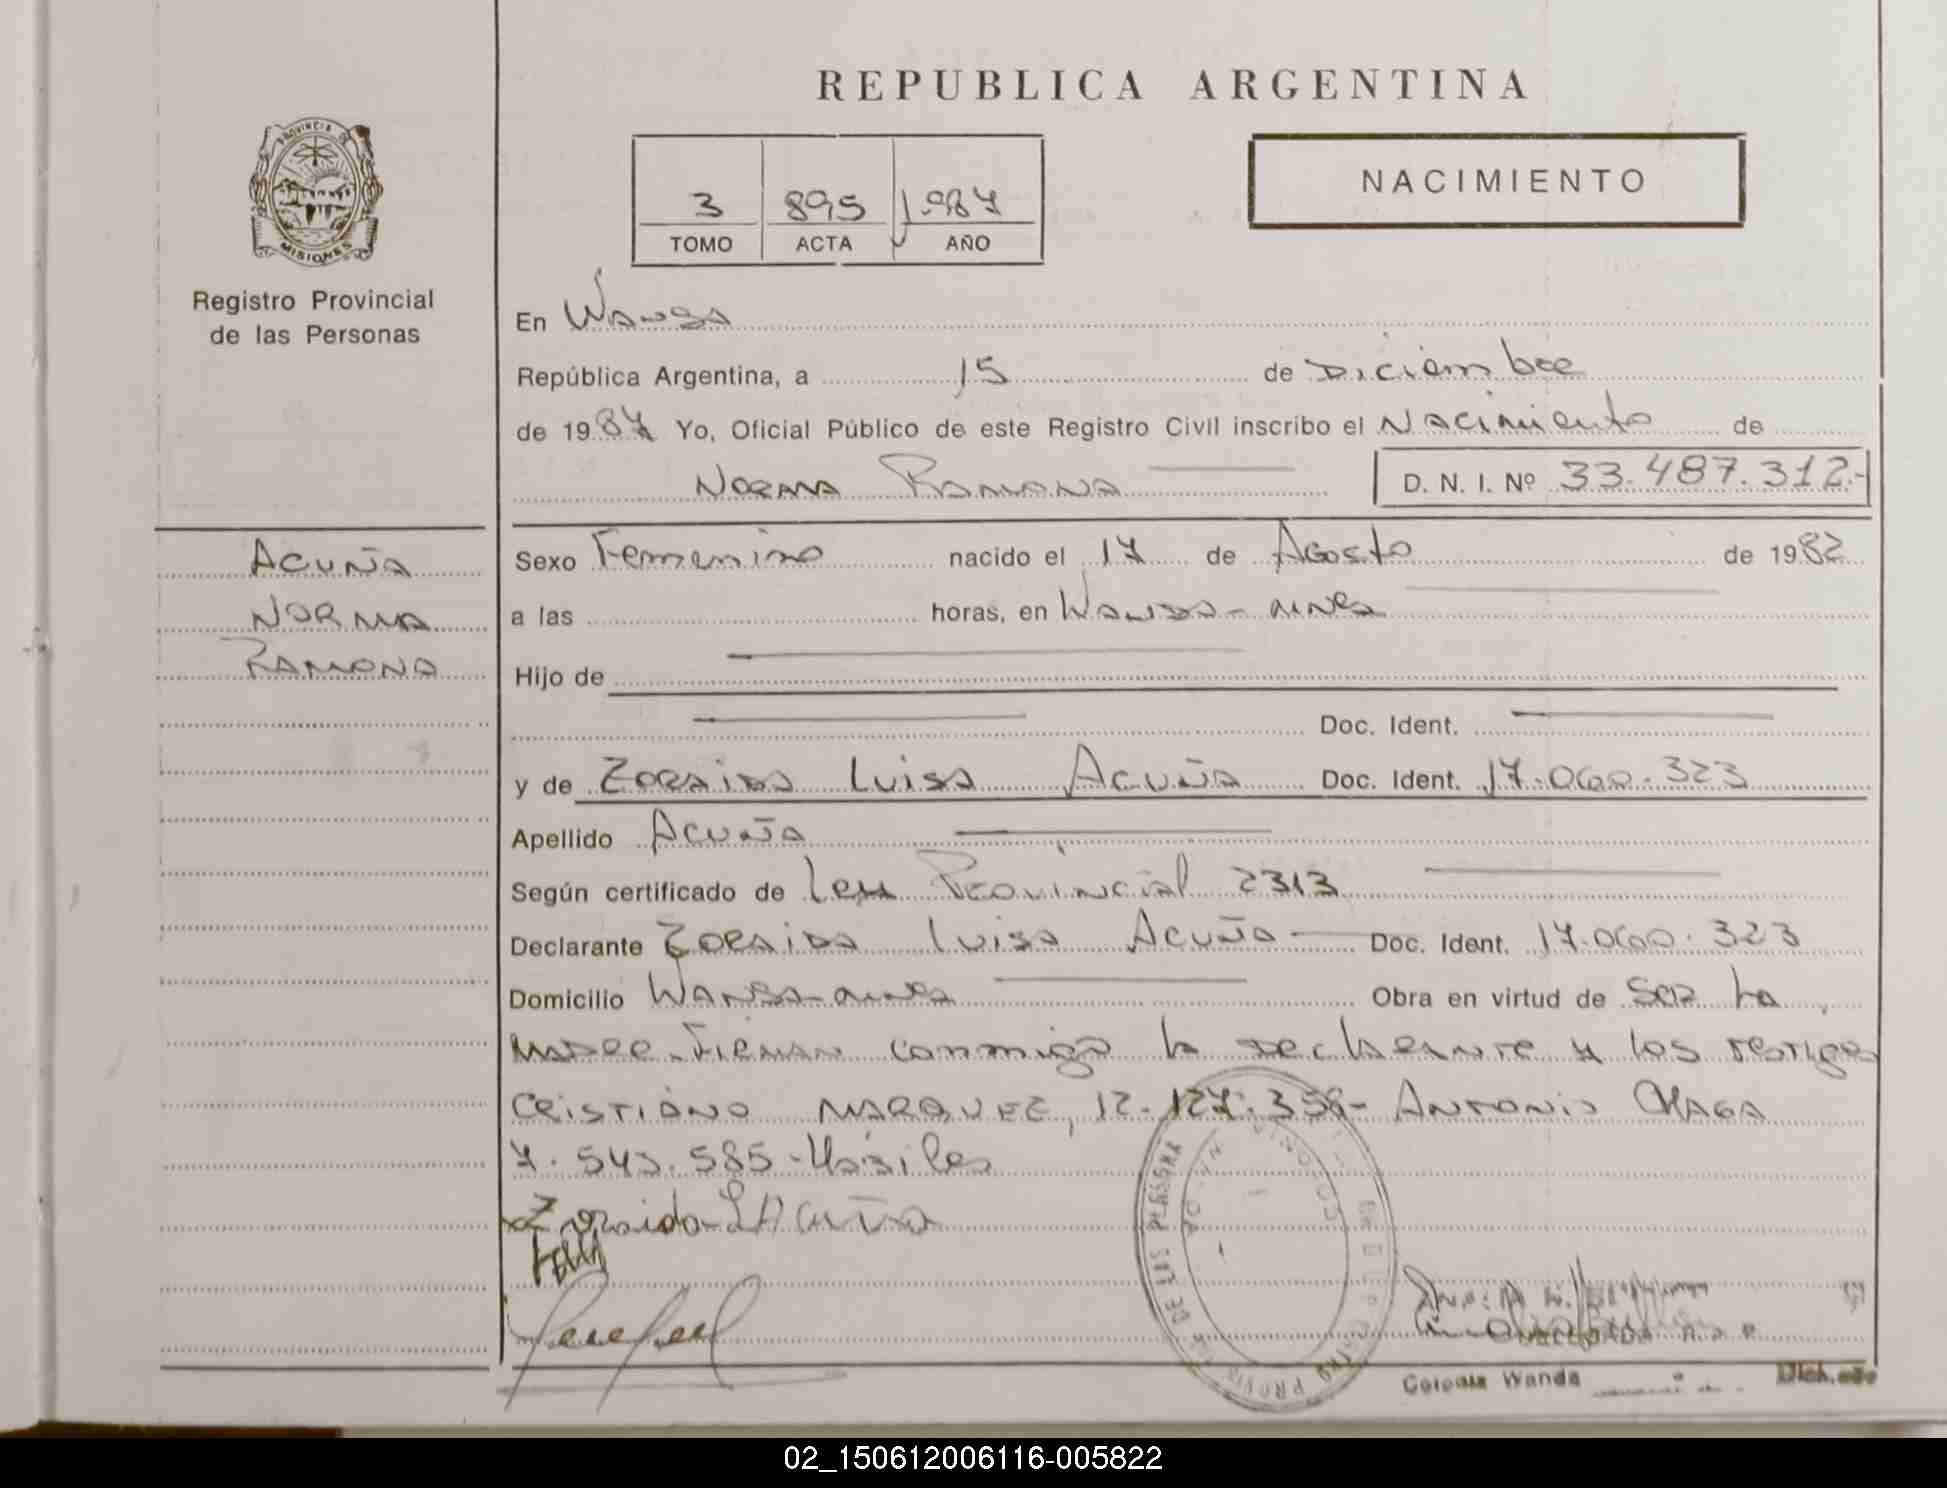 REPUBLICA ARGENTINA
PROVINCIA DE
MISIONES
Registro Provincial
de las Personas
3 895 1.987
TOMO ACTA AÑO
NACIMIENTO
En Wanda
República Argentina, a 15 de Diciembre
de 1987 Yo, Oficial Público de este Registro Civil inscribo el Nacimiento de
Norma Ramona D. N. I. Nº 33.487.312.-
Acuña
Norma
Ramona
Sexo Femenino nacido el 17 de Agosto de 1982
a las horas, en Wanda - mnes
Hijo de
Doc. Ident.
y de Zoraida Luisa Acuña Doc. Ident. 17.060.323
Apellido Acuña
Según certificado de Ley Provincial 2313
Declarante Zoraida Luisa Acuña Doc. Ident. 17.060.323
Domicilio Wanda - mnes Obra en virtud de Ser la
Madre - Firman conmigo la declarante y los testigos
Cristiano Marquez, 12.127.358 - Antonio Chaga
7.543.585 - Hábiles
Zoraida L Acuña
DE LAS PERSONA
Colonia Wanda
02_150612006116-005822